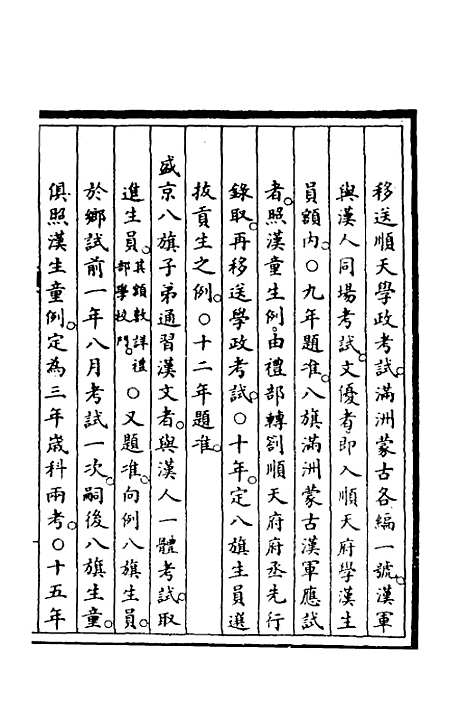 移送順天學政考試。滿洲蒙古各編一號。漢軍
與漢人同場考試。文優者。即入順天府學漢生
員額內。○九年題准。八旗滿洲蒙古漢軍應試
者。照漢童生例。由禮部轉劄順天府府丞先行
錄取。再移送學政考試。○十年。定八旗生員選
拔貢生之例。○十二年題准。
盛京八旗子弟通習漢文者。與漢人一體考試。取
進生員。其額數詳禮部學校門。○又題准。向例八旗生員。
於鄉試前一年八月考試一次。嗣後八旗生童。
俱照漢生童例。定為三年歲科兩考。○十五年